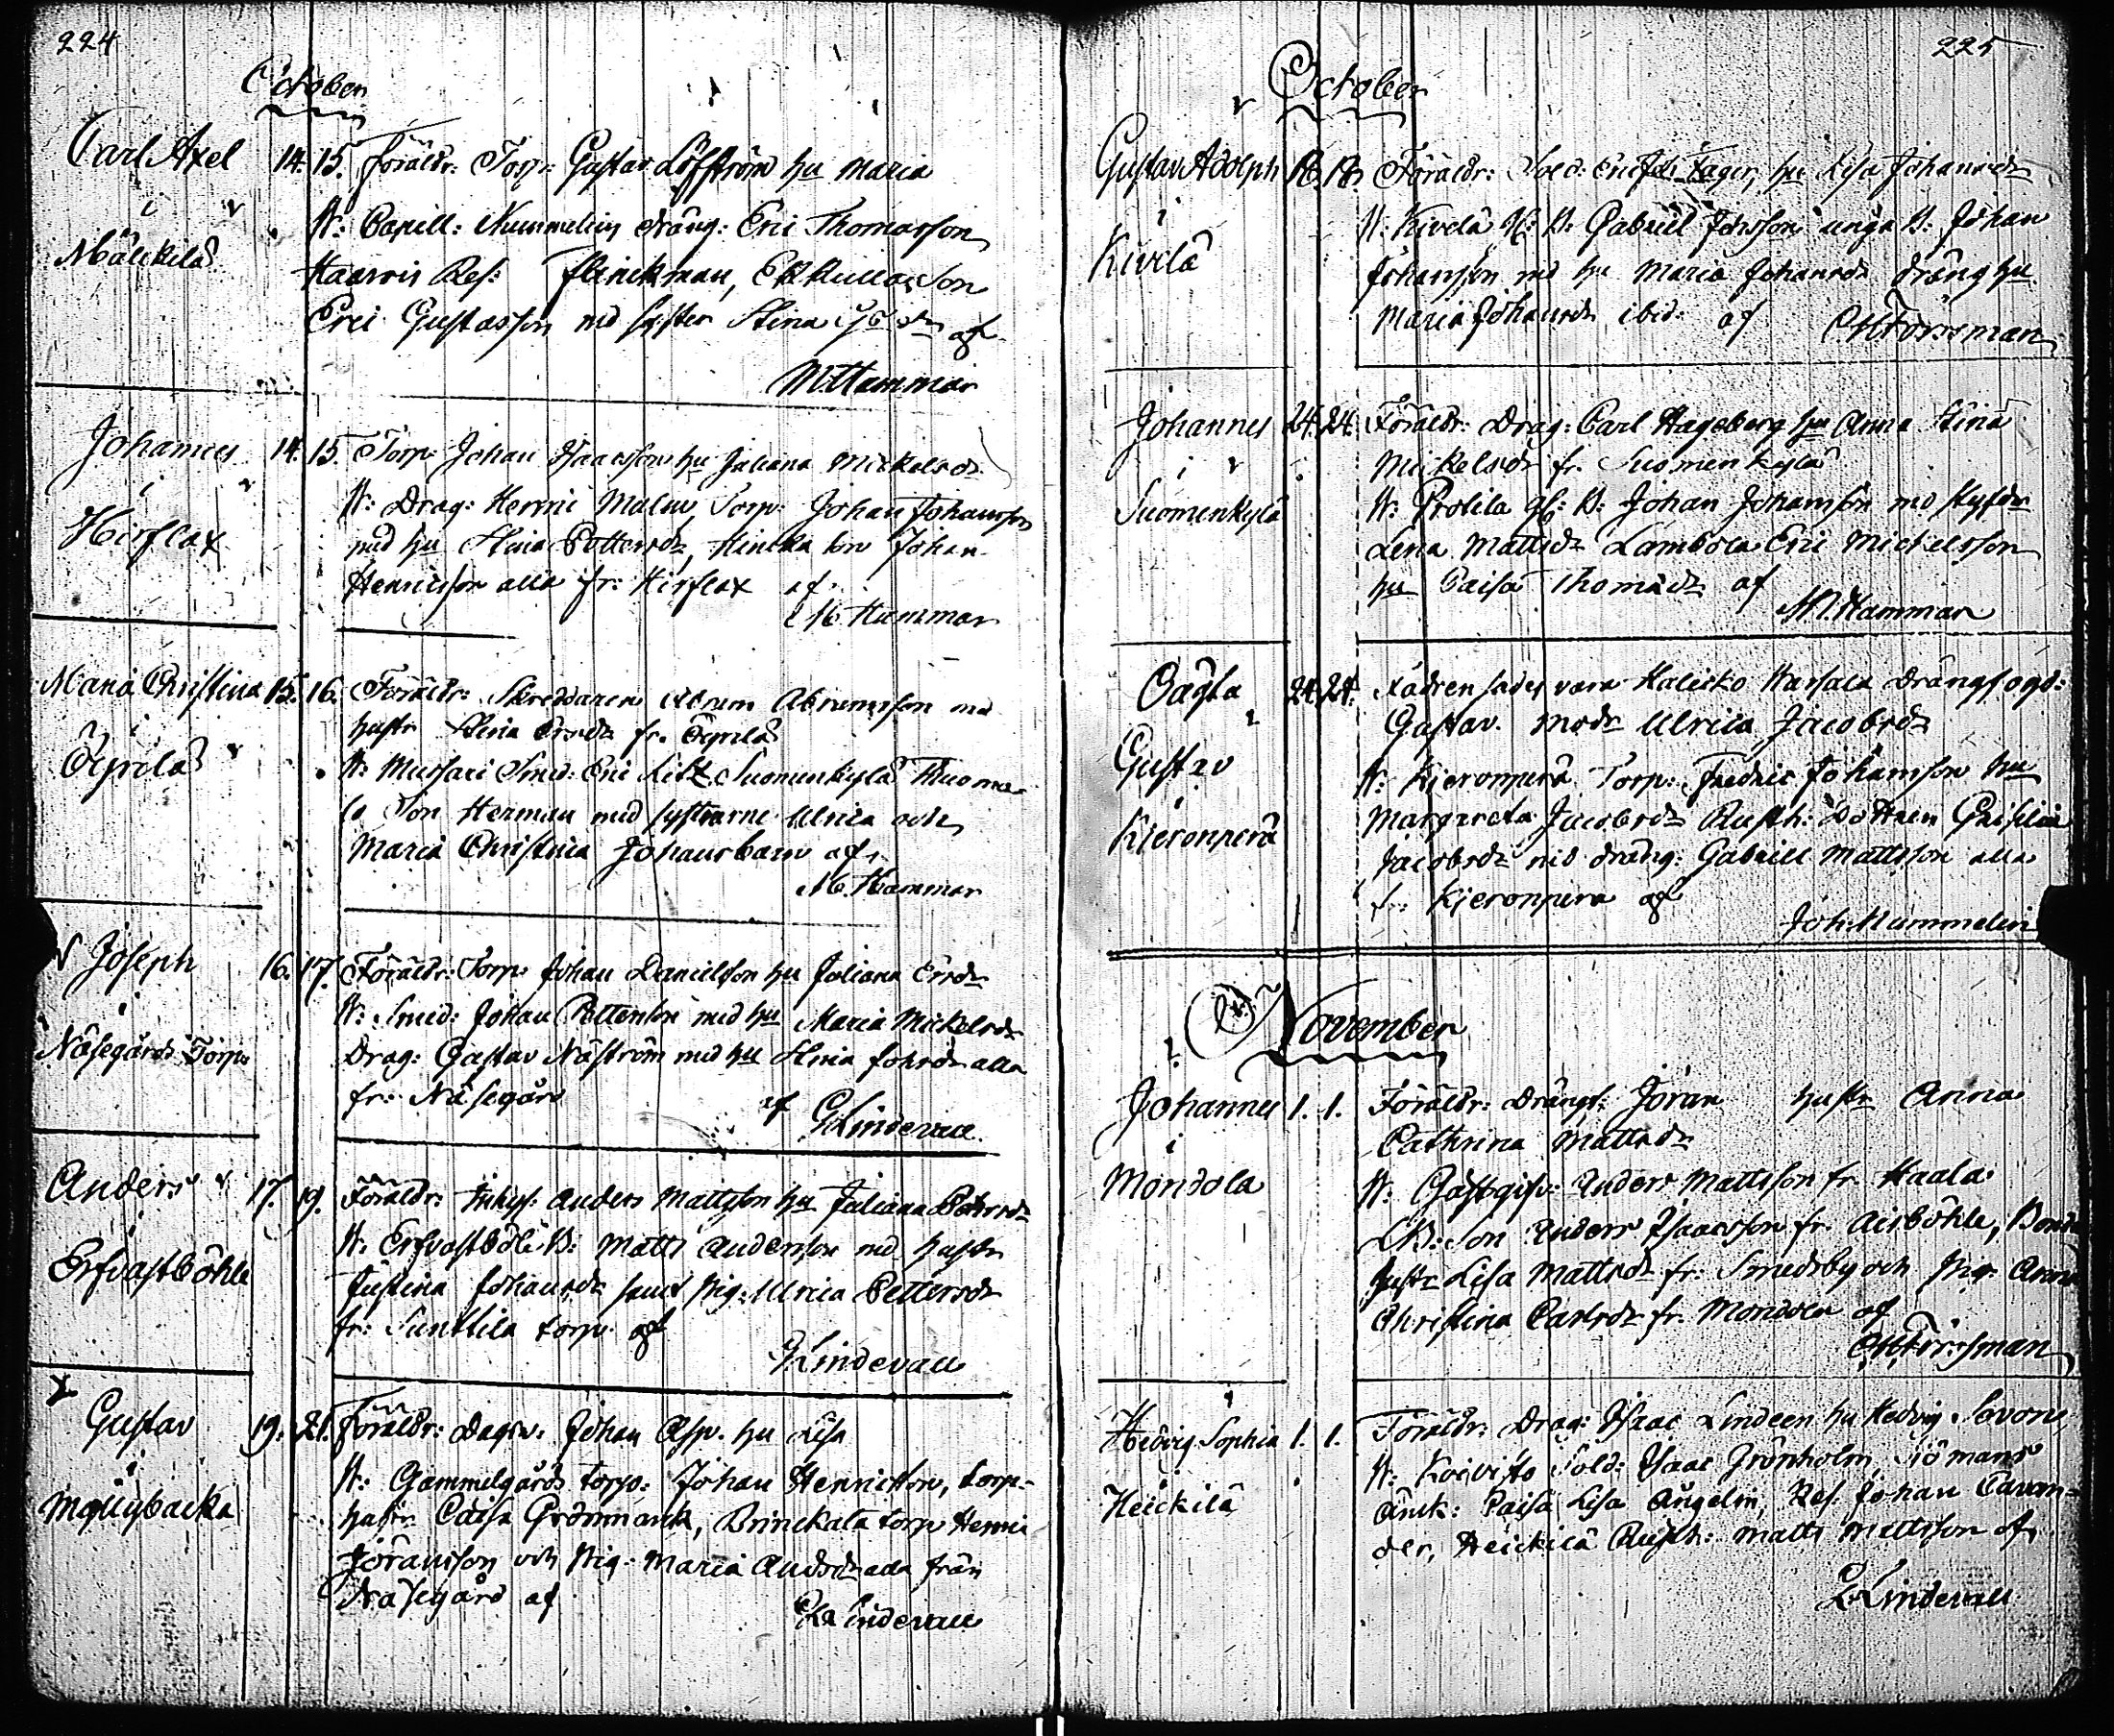 224
October
Carl Axel 14. 15. Föräldr: Torp: Gustav Löfström hu Maria
i
W: Capell: Nummelins dräng: Eric Thomasson
Mälikilä
Haarvis Ref: Flinckman, Son
Eric Gustafsson md syster Stina af
M. Hammar
Johannes 14. 15. Torp: Johan Isaacsson hu Juliana Mickelsdr
i
W: Drag: Henric Malm, Torp: Johan Johansson
Hirslax
med hu Stina Pettersdr, son Johan
Henricsson alla fr: Hirslax af
M. Hammar
Maria Christina 15. 16. Föräldr: Skreddaren Abram Abramsson md
i
hustr Stina Ersdr fr.
W: Mussari Smed: Eric Suomenkylä
Son Herman med systrarne Ulrica och
Maria Christina Johans barn af
M. Hammar
Joseph 16. 17. Föräldr: Torp: Johan Danielsson hu Juliana Ersdr
i
W: Smed: Johan Pettersson med hu Maria Mickelsdr
Näsegårds Torp
Drag: Gustav Näström med hu Stina Johsdr alla
fr: Näsegård af
G Lindevall
Anders 17. 19. Föräldr: Inhys: Anders Mattsson hu Juliana Petersdr
i
W: Erfvastböle B: Matts Andersson md hustr
Erfvastböhle
Justina Johansdr samt Pig: Ulrica Pettersdr
fr: Sunttila torp af
G Lindevall
Gustav 19. 21. Föräldr: Dagsv: Johan Asp hu Lisa
i
W: Gammelgårds torp: Johan Henricsson, torp-
Myllybacka
hustr: Caisa Grönmark, Brinckala torp Henric
Jöransson och Pig: Maria Andsdr alla från
Näsegård af
G Lindevall
225
October
Gustav Adolph 18. 18. Föräldr: Sold: Eric Joh: Fager, hu Lisa Johansdr
i
W: Kivelä B: Gabriel Johsson unga B: Johan
Kivelä
Johansson md hu Maria Johansdr dräng hu
Maria Johansdr ibid: af Forssman
Johannes 24. 24. Föräldr: Drag: Carl Hageberg hu Anna Stina
i
Mickelsdr fr. Suomenkylä
Suomenkylä
W: Prolila B: Johan Johansson md Styfdr
Lena Mattsdr Lambola Eric Michelsson
hu Caisa Thomasdr af
M. Hammar
Oägta 24. 24. Fadren sades vara Halicko Karsala Drängfogd:
Gustav. Modr Ulrica Jacobsdr
Gustav
W: Kieronperä Torp: Fredric Johansson hu
i
Margareta Jacobsdr Rusth: Dottren
Kieronperä
Jacobsdr md dräng: Gabriell Mattsson alla
fr: Kieronperä af
Joh: Nummelin
November
Johannes 1. 1. Föräldr: Drängf: Jöran hustr Anna
Cathrina Mattsdr
i
W: Gästgifv: Anders Mattsson fr. Haala
Mondola
Son Anders Isaacsson fr. Aisböhle, Bonde
hustr Lisa Mattsdr fr: Smedsby och Pig: Anna
Christina Carlsdr fr. Mondola af
Forssman
Hedvig Sophia 1. 1. Föräldr: Drag: Isaac Lindeen hu Hedvig Savon,
i
W: Koivisto Sold: Isaac Grönholm, Sömans
Heickilä
änk: Caisa Lisa Ångelin, Ref: Johan Cavan-
der, Heickilä Rusth: Matts Mattsson af
G Lindevall